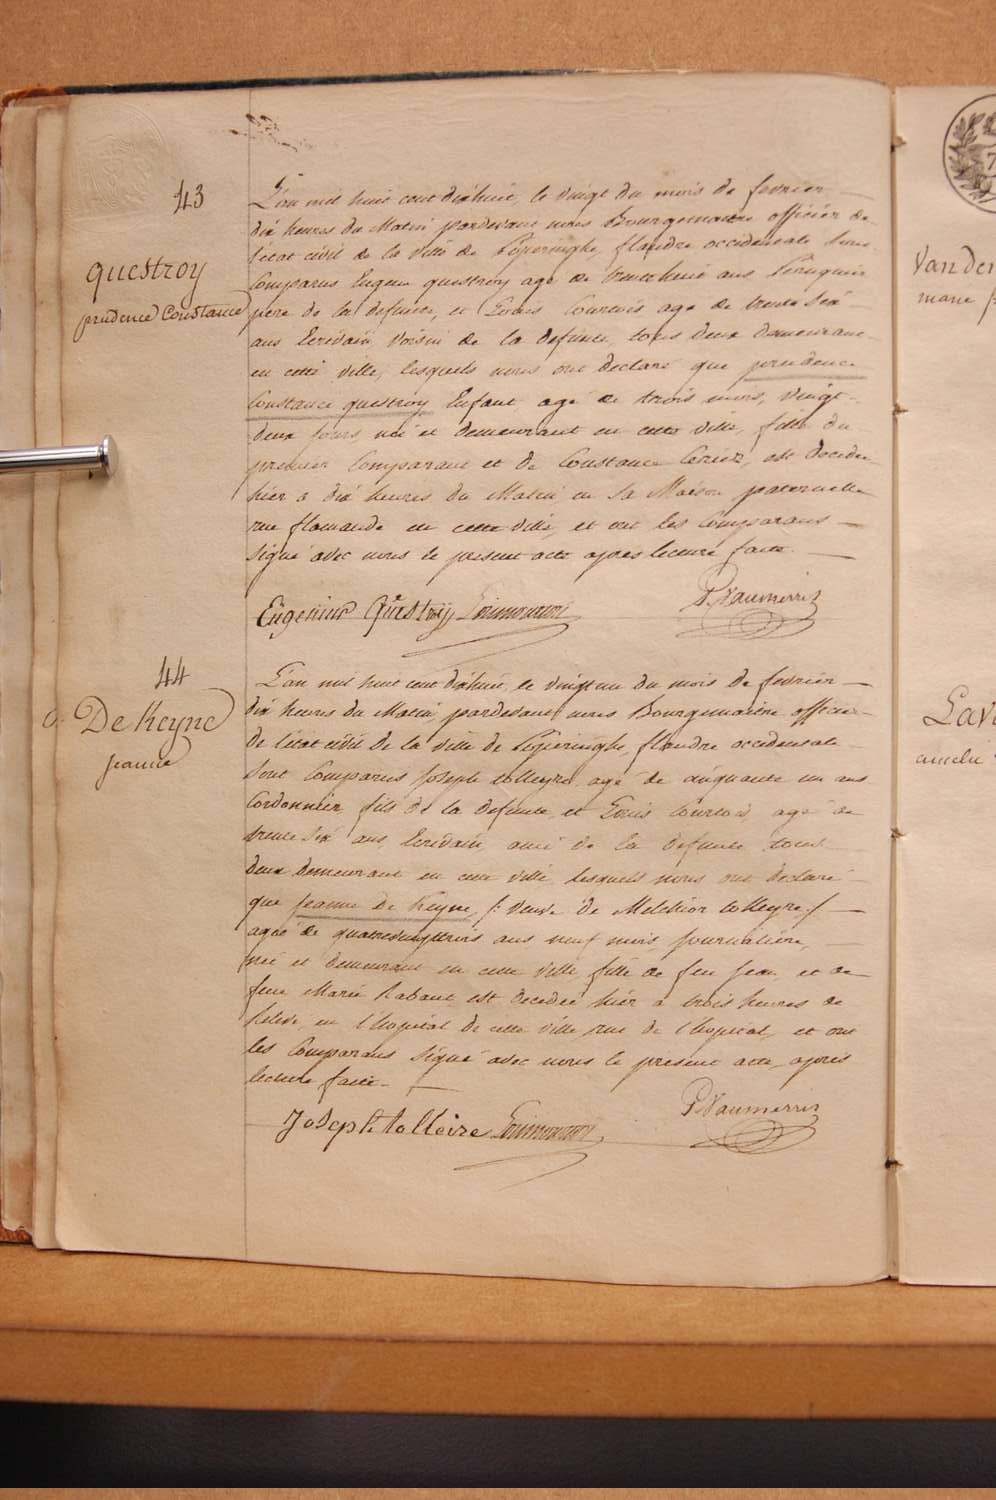 43
questroy
prudence Constance
L'an mil huit cent dixhuit, le vingt du mois de fevrier
dix heures du Matin pardevant nous Bourgemaitre officier de
l'état civil de la ville de Poperinghe, flandre occidentale sont
Comparus Eugene questroy agé de trentehuit ans Perruquier
pere de la defunte, et Louis Courtois agé de trente six
ans Ecrivain, voisin de la defunte, tous deux demeurant
en cette ville, lesquels nous ont declaré que prudence
Constance questroy Enfant agé de trois mois, vingt
deux jours, née et demeurant en cette ville, fille du
premier Comparant et de Constance est decedée
hier a dix heures du Matin en sa Maison paternelle
rue flamande en cette ville, et ont les Comparans
signé avec nous le present acte apres lecture faite.
Eugenius Questroy P. Vanmerris
44
De Keyne
jeanne
L'an mil huit cent dixhuit, le vingt un du mois de fevrier
dix heures du Matin, pardevant nous Bourgemaitre officier
de l'état civil de la ville de Poperinghe, flandre occidentale
sont Comparus Joseph tolleyre, agé de cinquante un ans
Cordonnier, fils de la defunte, et Louis Courtois, agé de
trente six ans, Ecrivain, ami de la defunte tous
deux demeurant en cette ville, lesquels nous ont declaré
que jeanne de Keyne, /: veuve de Melchior tolleyre :/
agée de quatrevingttrois ans neuf mois, journaliere,
née et demeurant en cette ville, fille de feu jean, et de
feue Marie Rabaut, est decedée hier a trois heures de
relevé, en l'hopital de cette ville, rue de l'hopital, et ont
les Comparans signé avec nous le present acte, apres
lecture faite.
Joseph tolleire P. Vanmerris
7
Van der
marie
Lav
amelie